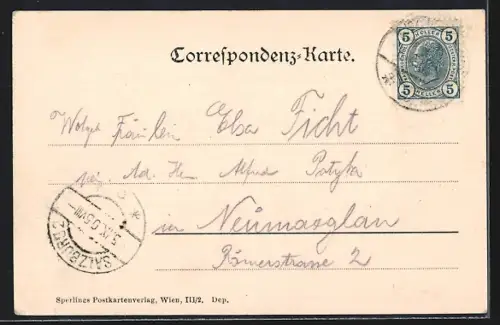 Correspondenz-Karte.
5 HELLER 5
5 HELLER 5
Fräulein Elsa Ficht
Ad. Hrn Alfred
in Neumaxglan
Römerstrasse 2
SALZBURG 2
Sperlings Postkartenverlag, Wien, III/2. Dep.